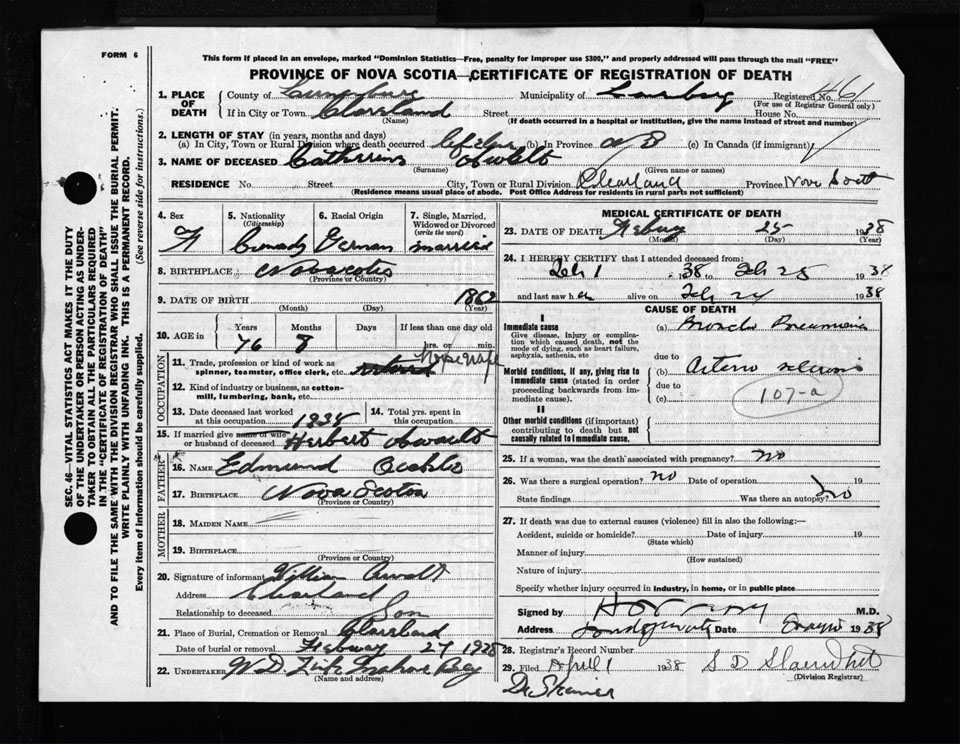 FORM 6
This form if placed in an envelope, marked "Dominion Statistics—Free, penalty for improper use $300," and properly addressed will pass through the mail "FREE"
PROVINCE OF NOVA SCOTIA—CERTIFICATE OF REGISTRATION OF DEATH
SEC. 46—VITAL STATISTICS ACT MAKES IT THE DUTY
OF THE UNDERTAKER OR PERSON ACTING AS UNDER-
TAKER TO OBTAIN ALL THE PARTICULARS REQUIRED
IN THE "CERTIFICATE OF REGISTRATION OF DEATH"
AND TO FILE THE SAME WITH THE DIVISION REGISTRAR WHO SHALL ISSUE THE BURIAL PERMIT.
WRITE PLAINLY WITH UNFADING INK. THIS IS A PERMANENT RECORD.
Every item of information should be carefully supplied. (See reverse side for instructions.)
1. PLACE OF DEATH
County of Lunenburg Municipality of Registered No. 461
(For use of Registrar General only)
If in City or Town Street House No.
(Name) (If death occurred in a hospital or institution, give the name instead of street and number)
2. LENGTH OF STAY (in years, months and days)
(a) In City, Town or Rural Division where death occurred (b) In Province (c) In Canada (if immigrant)
3. NAME OF DECEASED
(Surname) (Given name or names)
RESIDENCE No. Street City, Town or Rural Division Clearland Province Nova Scotia
(Residence means usual place of abode. Post Office Address for residents in rural parts not sufficient)
4. Sex
F
5. Nationality
(Citizenship)
6. Racial Origin
German
7. Single, Married,
Widowed or Divorced
(write the word)
married
8. BIRTHPLACE
(Province or Country)
9. DATE OF BIRTH 1862
(Month) (Day) (Year)
10. AGE in
Years Months Days If less than one day old
76 8 hrs. or min.
OCCUPATION
11. Trade, profession or kind of work as
spinner, teamster, office clerk, etc.
12. Kind of industry or business, as cotton-
mill, lumbering, bank, etc.
13. Date deceased last worked
at this occupation
14. Total yrs. spent in
this occupation
15. If married give name of wife
or husband of deceased Herbert
FATHER
16. NAME Edmund
17. BIRTHPLACE Nova Scotia
(Province or Country)
MOTHER
18. MAIDEN NAME
19. BIRTHPLACE
(Province or Country)
20. Signature of informant William
Address Clearland
Relationship to deceased Son
21. Place of Burial, Cremation or Removal
Date of burial or removal 27 1938
22. UNDERTAKER
(Name and address)
MEDICAL CERTIFICATE OF DEATH
23. DATE OF DEATH 25 1938
(Month) (Day) (Year)
24. I HEREBY CERTIFY that I attended deceased from:
Feb 1 38 to Feb 25 1938
and last saw h er alive on Feb 24 1938
CAUSE OF DEATH
I
Immediate cause
Give disease, injury or complica-
tion which caused death, not the
mode of dying, such as heart failure,
asphyxia, asthenia, etc
(a) Broncho Pneumonia
due to
Morbid conditions, if any, giving rise to
immediate cause (stated in order
proceeding backwards from im-
mediate cause).
(b) Arterio sclerosis
due to
(c) 107-a
II
Other morbid conditions (if important)
contributing to death but not
causally related to immediate cause.
25. If a woman, was the death associated with pregnancy? No
26. Was there a surgical operation? no Date of operation 19
State findings Was there an autopsy? no
27. If death was due to external causes (violence) fill in also the following:—
Accident, suicide or homicide? Date of injury 19
(State which)
Manner of injury
(How sustained)
Nature of injury
Specify whether injury occurred in industry, in home, or in public place
Signed by M.D.
Address Date 1938
28. Registrar's Record Number
29. Filed April 1 1938
(Division Registrar)